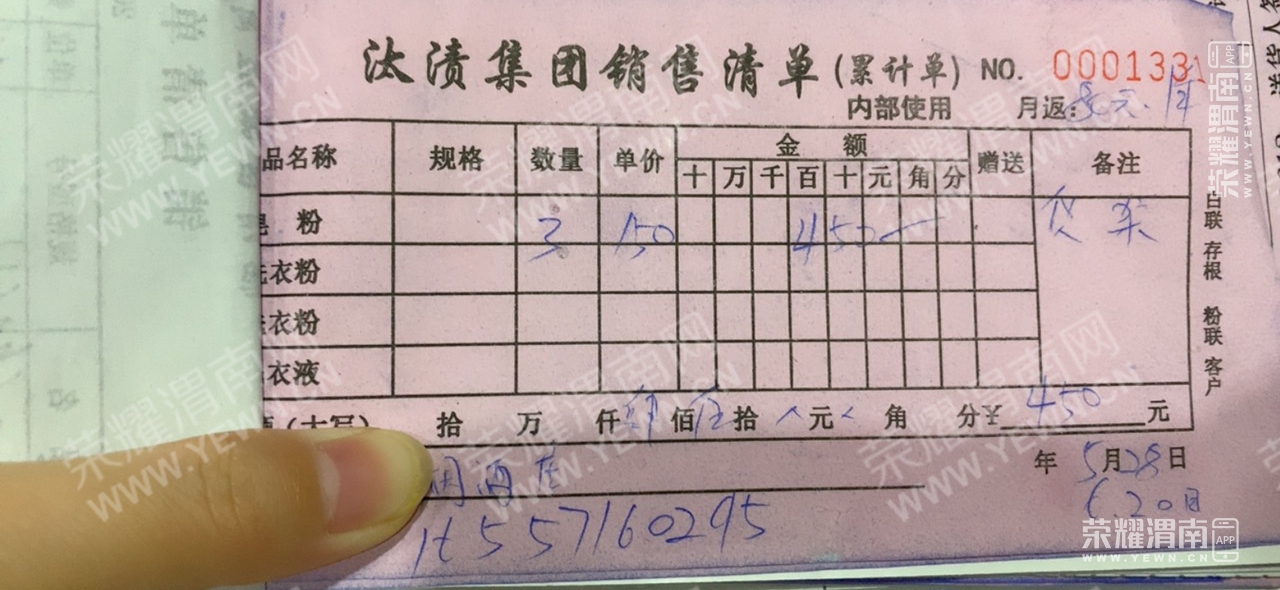 汰渍集团销售清单(累计单) NO. 0001331
内部使用 月返:
品名称 规格 数量 单价 金额 赠送 备注
十 万 千 百 十 元 角 分
皂 粉 3 150 450 — 货架
洗衣粉
衣粉
衣液
(大写) 拾 万 仟 肆 佰 伍 拾 元 角 分 ¥ 450 元
烟酒店 年 5 月 28 日
6.20日
白联 存根 粉联 客户
送货人
荣耀渭南 APP
WWW.YEWN.CN
荣耀渭南 APP
WWW.YEWN.CN
荣耀渭南网
WWW.YEWN.CN